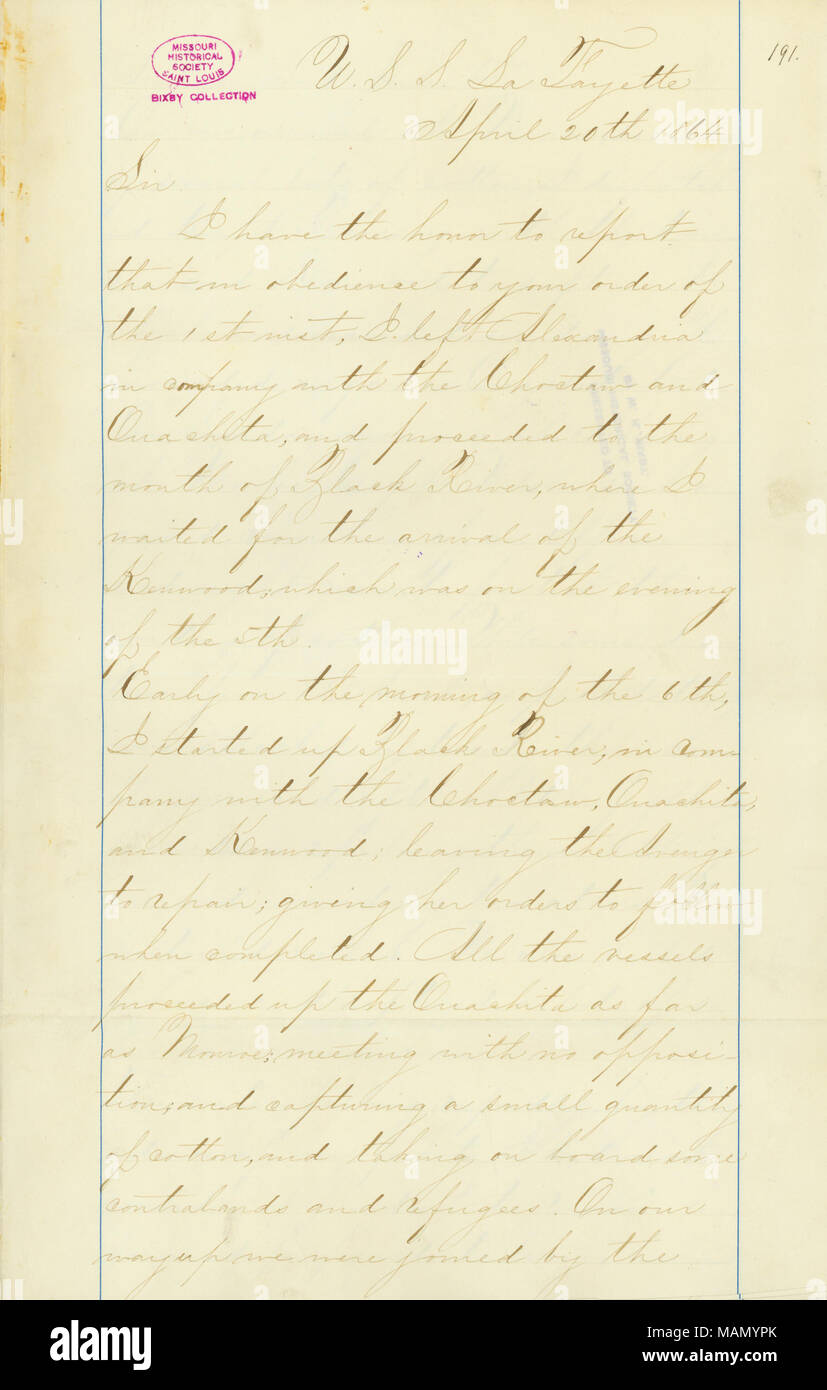 MISSOURI
HISTORICAL
SOCIETY
SAINT LOUIS
BIXBY COLLECTION
191.
U. S. S. La Fayette
April 20th 1864
Sir
I have the honor to report
that in obedience to your order of
the 1st inst, I left Alexandria
in company with the Choctaw and
Ouachita, and proceeded to the
mouth of Black River, where I
waited for the arrival of the
Kenwood, which was on the evening
of the 5th.
Early on the morning of the 6th,
I started up Black River, in com
pany with the Choctaw, Ouachita,
and Kenwood; leaving the Avenger
to repair; giving her orders to follow
when completed. All the vessels
proceeded up the Ouachita as far
as Monroe; meeting with no opposi-
tion, and capturing a small quantity
of cotton, and taking on board some
contrabands and refugees. On our
way up we were joined by the
alamy
Image ID: MAMYPK
www.alamy.com